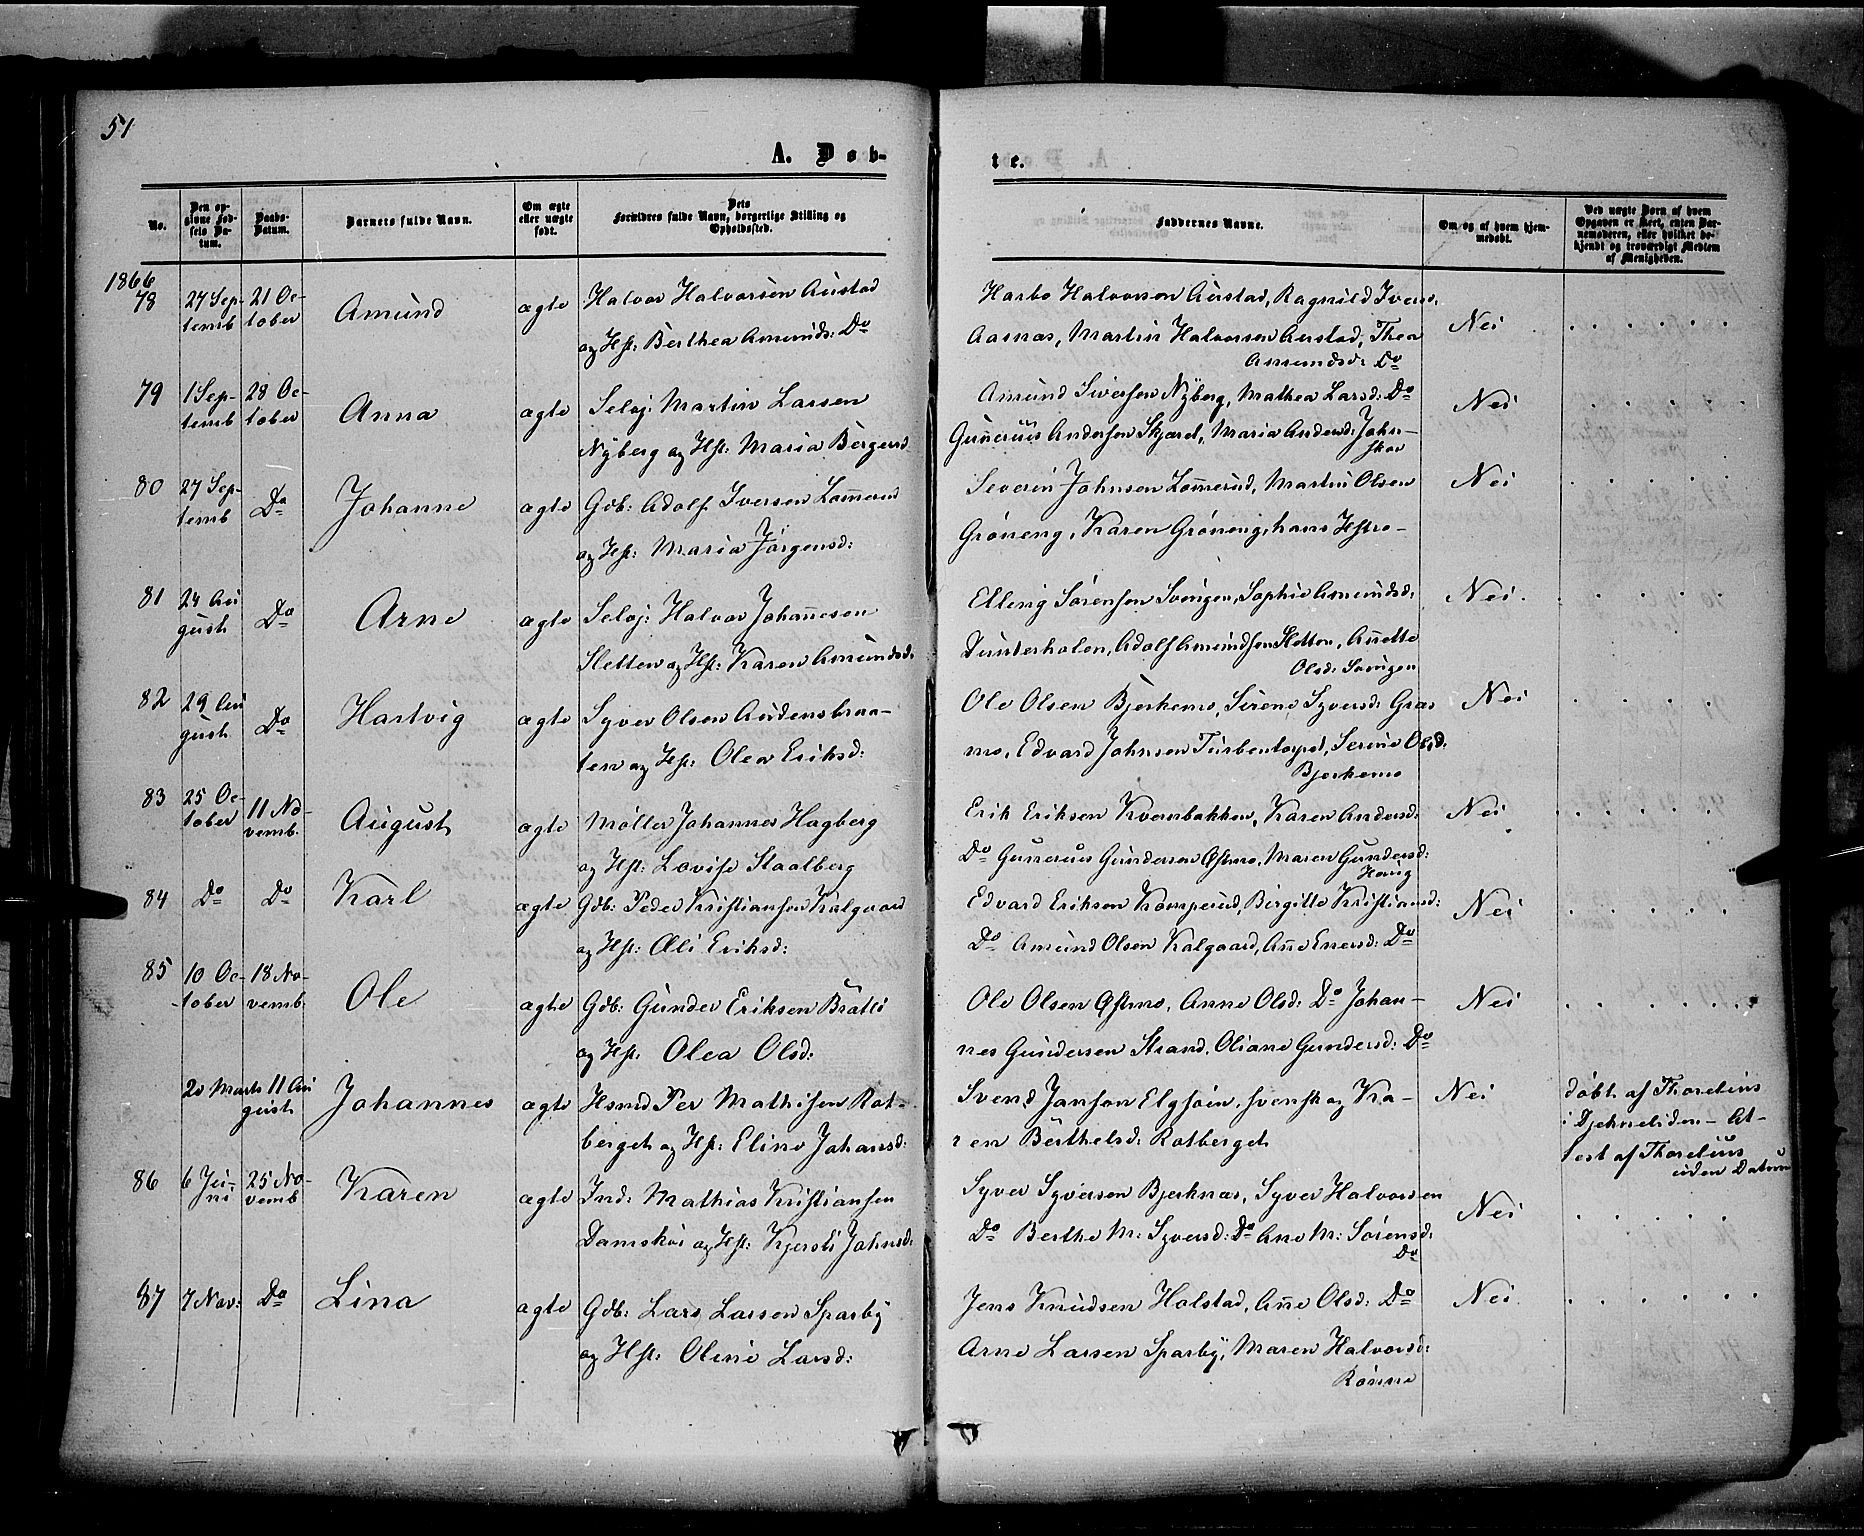 51
A. Døb-
te.
No.
Den opgivne Fødsels Datum.
Daabs-Datum.
Barnets fulde Navn.
Om ægte eller uægte født.
Dets Forældres fulde Navn, borgerlige Stilling og Opholdssted.
Faddernes Navne.
Om og af hvem hjemmedøbt.
Ved uægte Børn af hvem Opgaven er skeet, enten Barnemoderen, eller hvilket bekjendt og troværdigt Medlem af Menigheden.
1866
78 27 Sep- 21 Oc- Amund ægte Halvor Halvorsen Austad
temb tober og Hst: Berthea Amunds: Do
Harbo Halvorsen Austad, Ragnild Ivers.
Aasnæs, Martin Halvorsen Austad, Thea Nei
Amundsd: Do
79 1 Sep- 28 Oc- Anna ægte Selvj: Martin Larsen
temb tober Nyberg og Hst: Maria Børgersd
Amund Siversen Nyberg, Mathea Larsd: Do Nei
Gunerius Andersen Skjæret, Maria Andersd: John-
skov
80 27 Sep- Do Johanne ægte Gdb: Adolf Iversen Lømerud
temb og Hst: Maria Jørgensd:
Severin Johnsen Lømerud, Martin Olsen Nei
Grøneng, Karen Grøneng, hans Hstro-
81 24 Au Do Arne ægte Selvj: Halvor Johannesen
gust Sletten og Hst: Karen Amundsd:
Elling Sørensen Svingen, Sophie Amundsd: Nei.
Adolf Amundsen Sletten, Anette
Olsd: Svingen
82 29 Au Do Hartvig ægte Syver Olsen Audensbraa-
gust ten og Hst: Olea Eriksd:
Ole Olsen Bjerkemo, Sirene Syversd: Græs Nei
mo, Edvard Johnsen Turbentorpet, Serine Olsd:
Bjerkemo
83 25 Oc- 11 No August ægte Møller Johannes Hagberg
tober vemb. og Hst: Lovise Staalberg
Erik Eriksen Kvernbakken, Karen Andersd: Nei
Do Gunerius Gundersen Østmo, Maren Gundersd:
Haug
84 Do Do Karl ægte Gdb: Peder Kristiansen Kalgaard
og Hst: Oli Eriksd:
Edvard Eriksen Kamperud, Birgitte Kristiansd: Nei
Do Amund Olsen Kalgaard, Ane Enersd: Do
85 10 Oc- 18 No- Ole ægte Gdb: Gunder Eriksen Bratli
tober vemb. og Hst: Olea Olsd:
Ole Olsen Østmo, Anne Olsd: Do Johan- Nei
nes Gundersen Strand, Oliane Gundersd: Do
20 Marts 11 Au Johannes ægte Hsmd Per Mathisen Rot-
gust berget og Hst: Eline Johansd:
Svend Janson Elgsøen, svensk og Ka- Nei
ren Berthelsd: Rotberget
døbt af Thorelius
i Djehneliden - At-
test af Thorelius
uden Datum
86 6 Ju- 25 No- Karen ægte Ind: Mathias Kristiansen
ni vemb Damskoi og Hst: Kjersti Johnsd:
Syver Syversen Bjerknæs, Syver Halvorsen Nei
Do Berthe M: Syversd: Do Ane M: Sørensd:
Do
87 7 Nov: Do Lina ægte Gdb: Lars Larsen Sparby
og Hst: Oline Larsd:
Jens Knudsen Holstad, Ane Olsd: Do Nei
Arne Larsen Sparby, Maren Halvorsd:
Rønne